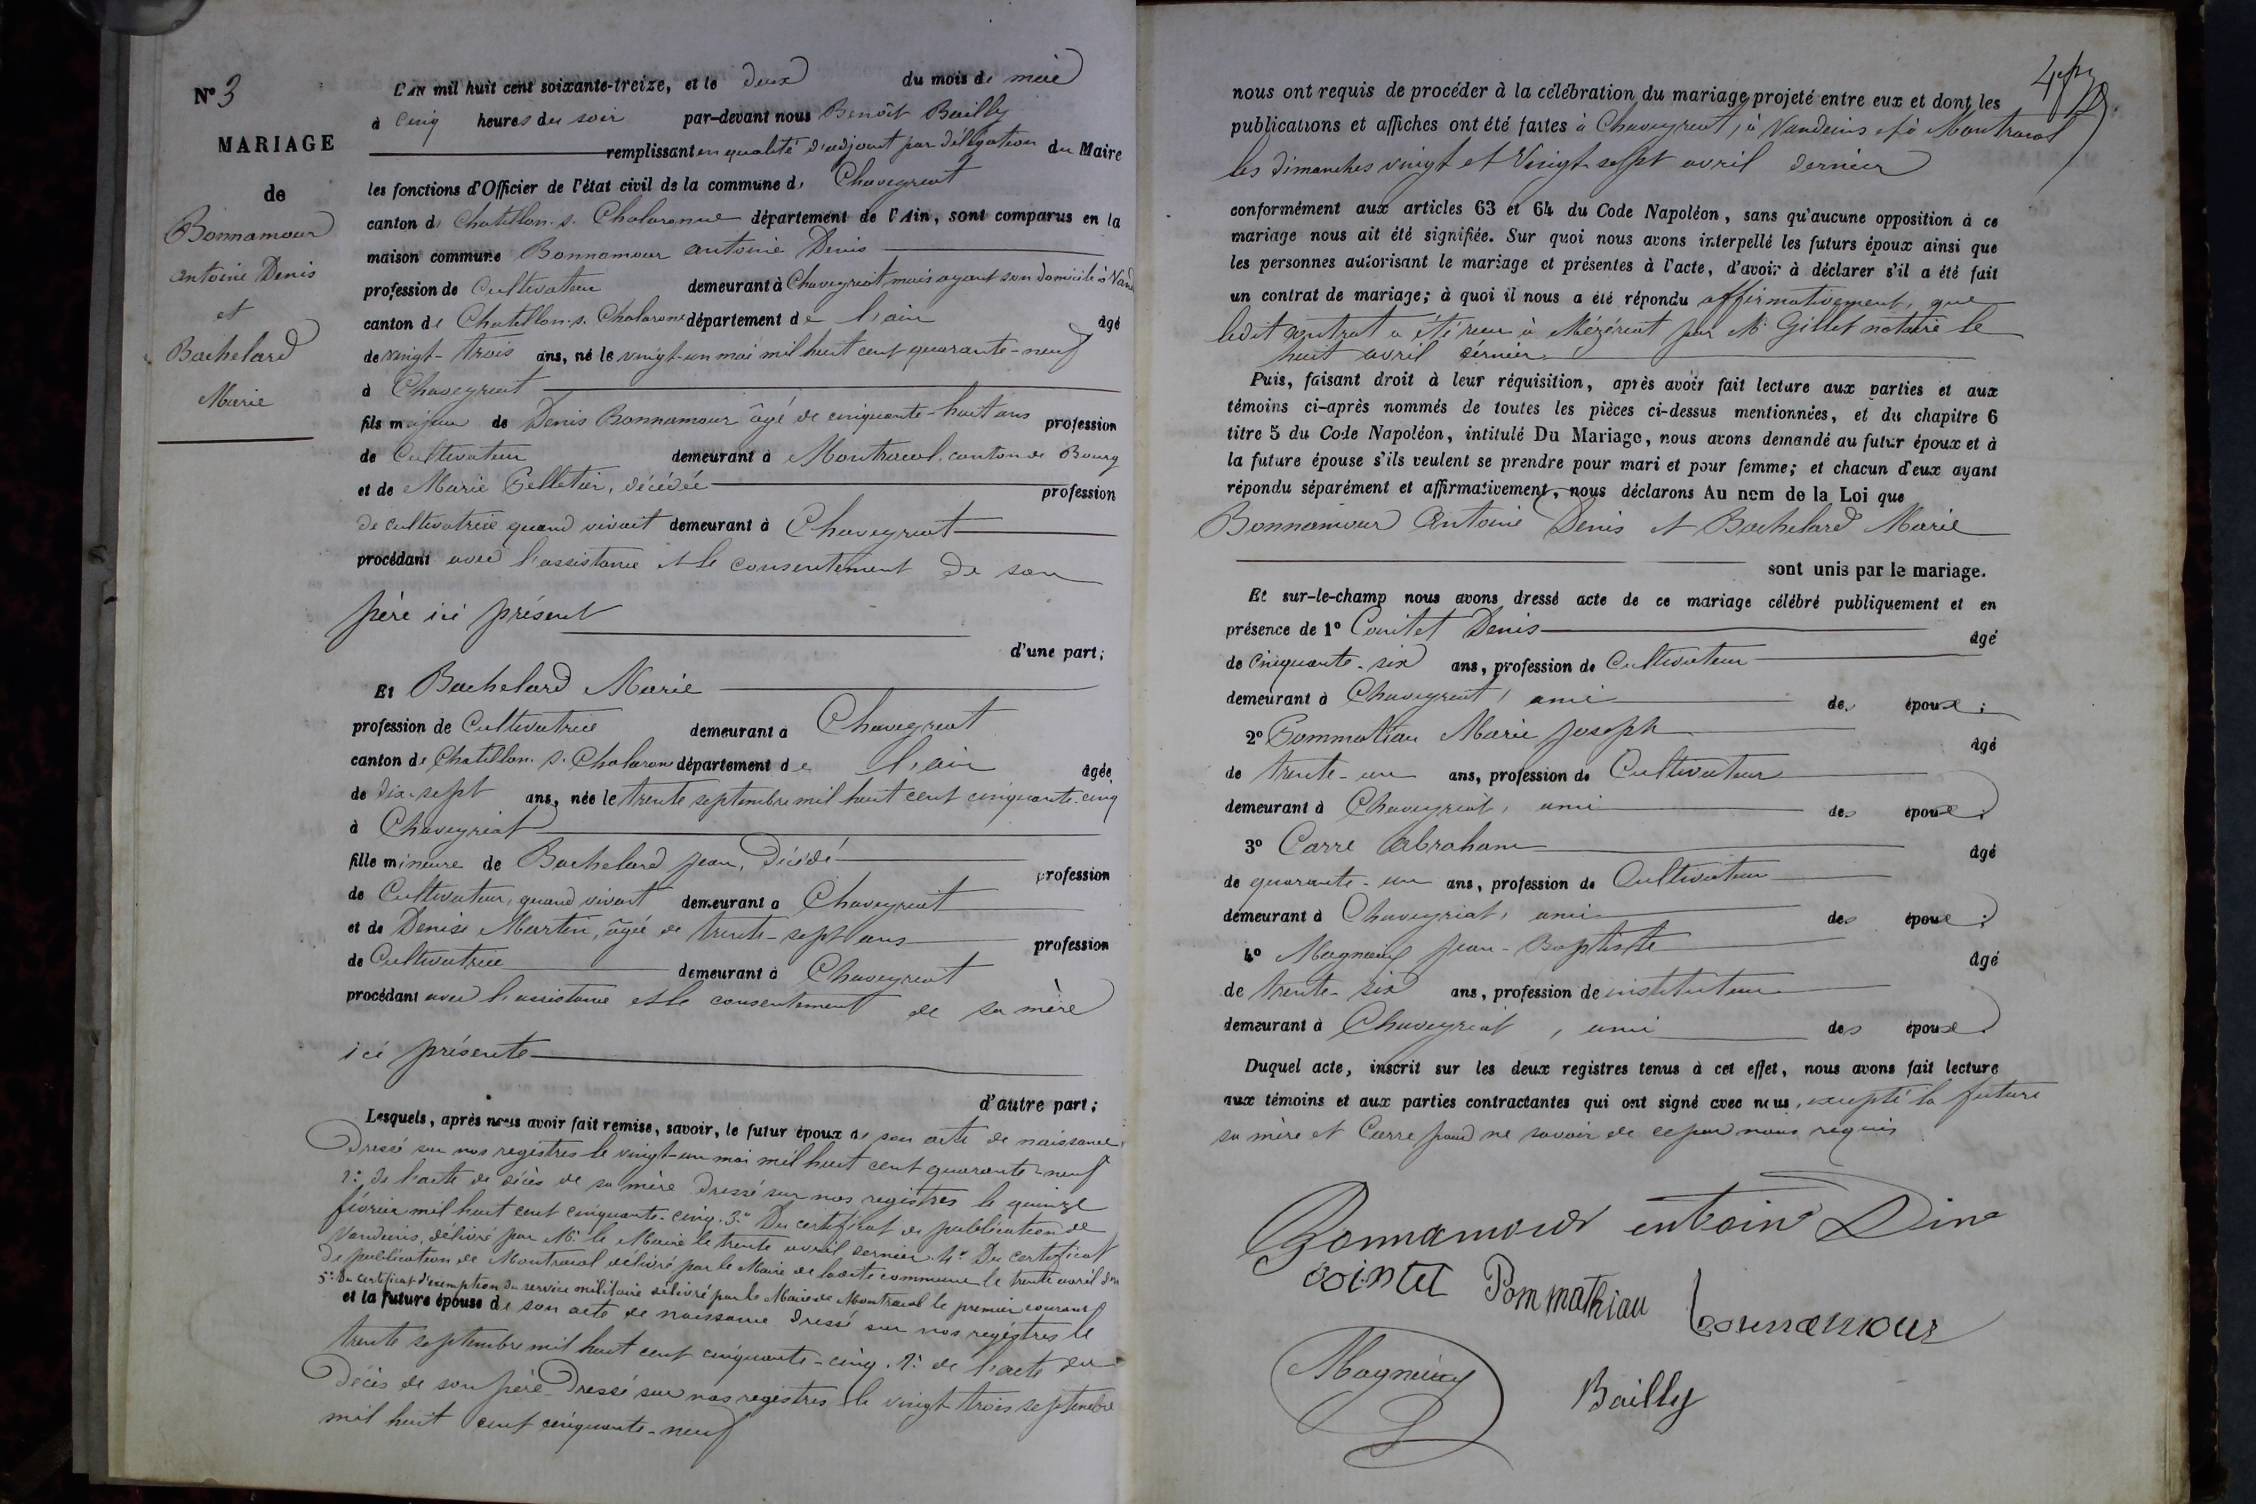 N° 3
MARIAGE
de
Bonnamour
Antoine Denis
et
Bachelard
Marie
L'AN mil huit cent soixante-treize, et le deux du mois de mai
à cinq heures du soir par-devant nous Benoît Bailly
remplissant en qualité d'adjoint par délégation du Maire
les fonctions d'Officier de l'état civil de la commune de Chaveyriat
canton de Chatillon-s-Chalaronne département de l'Ain, sont comparus en la
maison commune Bonnamour Antoine Denis
profession de Cultivateur demeurant à Chaveyriat, mais ayant son domicile à Vand
canton de Chatillon-s-Chalaronne département de l'ain âgé
de vingt-trois ans, né le vingt-un mai mil huit cent quarante-neuf
à Chaveyriat
fils majeur de Denis Bonnamour âgé de cinquante-huit ans profession
de Cultivateur demeurant à Montracol, canton de Bourg
et de Marie Pelletier, décédée profession
de cultivatrice quand vivait demeurant à Chaveyriat
procédant avec l'assistance et le consentement de son
père ici présent
d'une part;
Et Bachelard Marie
profession de Cultivatrice demeurant à Chaveyriat
canton de Chatillon-s-Chalaronne département de l'ain âgée
de dix-sept ans, née le trente septembre mil huit cent cinquante-cinq
à Chaveyriat
fille mineure de Bachelard Jean, Décédé profession
de Cultivateur, quand vivait demeurant à Chaveyriat
et de Denise Martin, âgée de trente-sept ans profession
de Cultivatrice demeurant à Chaveyriat
procédant avec l'assistance et le consentement de sa mère
ici présente
d'autre part;
Lesquels, après nous avoir fait remise, savoir, le futur époux de son acte de naissance
Dressé sur nos registres le vingt-un mai mil huit cent quarante-neuf
2° de l'acte de décès de sa mère Dressé sur nos registres le quinze
février mil huit cent cinquante-cinq. 3° Du certificat de publication de
Vandeins, délivré par Mr le Maire le trente avril dernier. 4° Du certificat
de publication de Montracol délivré par le Maire de ladite commune le trente avril der
5° Du certificat d'exemption du service militaire délivré par le Maire de Montracol le premier courant
et la future épouse de son acte de naissance dressé sur nos registres le
trente septembre mil huit cent cinquante-cinq. 2° de l'acte du
Décès de son père Dressé sur nos registres le vingt trois septembre
mil huit cent cinquante-neuf
nous ont requis de procéder à la célébration du mariage projeté entre eux et dont les
publications et affiches ont été faites à Chaveyriat, à Vandeins et à Montracol
les dimanches vingt et vingt-sept avril dernier
conformément aux articles 63 et 64 du Code Napoléon, sans qu'aucune opposition à ce
mariage nous ait été signifiée. Sur quoi nous avons interpellé les futurs époux ainsi que
les personnes autorisant le mariage et présentes à l'acte, d'avoir à déclarer s'il a été fait
un contrat de mariage; à quoi il nous a été répondu affirmativement, que
ledit contrat a été reçu à Mézériat par Me Gillet notaire le
huit avril dernier
Puis, faisant droit à leur réquisition, après avoir fait lecture aux parties et aux
témoins ci-après nommés de toutes les pièces ci-dessus mentionnées, et du chapitre 6
titre 5 du Code Napoléon, intitulé Du Mariage, nous avons demandé au futur époux et à
la future épouse s'ils veulent se prendre pour mari et pour femme; et chacun d'eux ayant
répondu séparément et affirmativement, nous déclarons Au nom de la Loi que
Bonnamour Antoine Denis et Bachelard Marie
sont unis par le mariage.
Et sur-le-champ nous avons dressé acte de ce mariage célébré publiquement et en
présence de 1° Cointet Denis âgé
de cinquante-six ans, profession de Cultivateur
demeurant à Chaveyriat, ami des époux;
2° Pommathiau Marie Joseph âgé
de trente-un ans, profession de Cultivateur
demeurant à Chaveyriat, ami des époux;
3° Carre Abraham âgé
de quarante-un ans, profession de Cultivateur
demeurant à Chaveyriat, ami des époux;
4° Magnieux Jean-Baptiste âgé
de trente-six ans, profession de instituteur
demeurant à Chaveyriat, ami des époux
Duquel acte, inscrit sur les deux registres tenus à cet effet, nous avons fait lecture
aux témoins et aux parties contractantes qui ont signé avec nous, excepté la future
sa mère et Carre pour ne savoir de ce par nous requis
Bonnamour entoine Dine
Cointet Pommathiau bonnamour
Magnieux Bailly